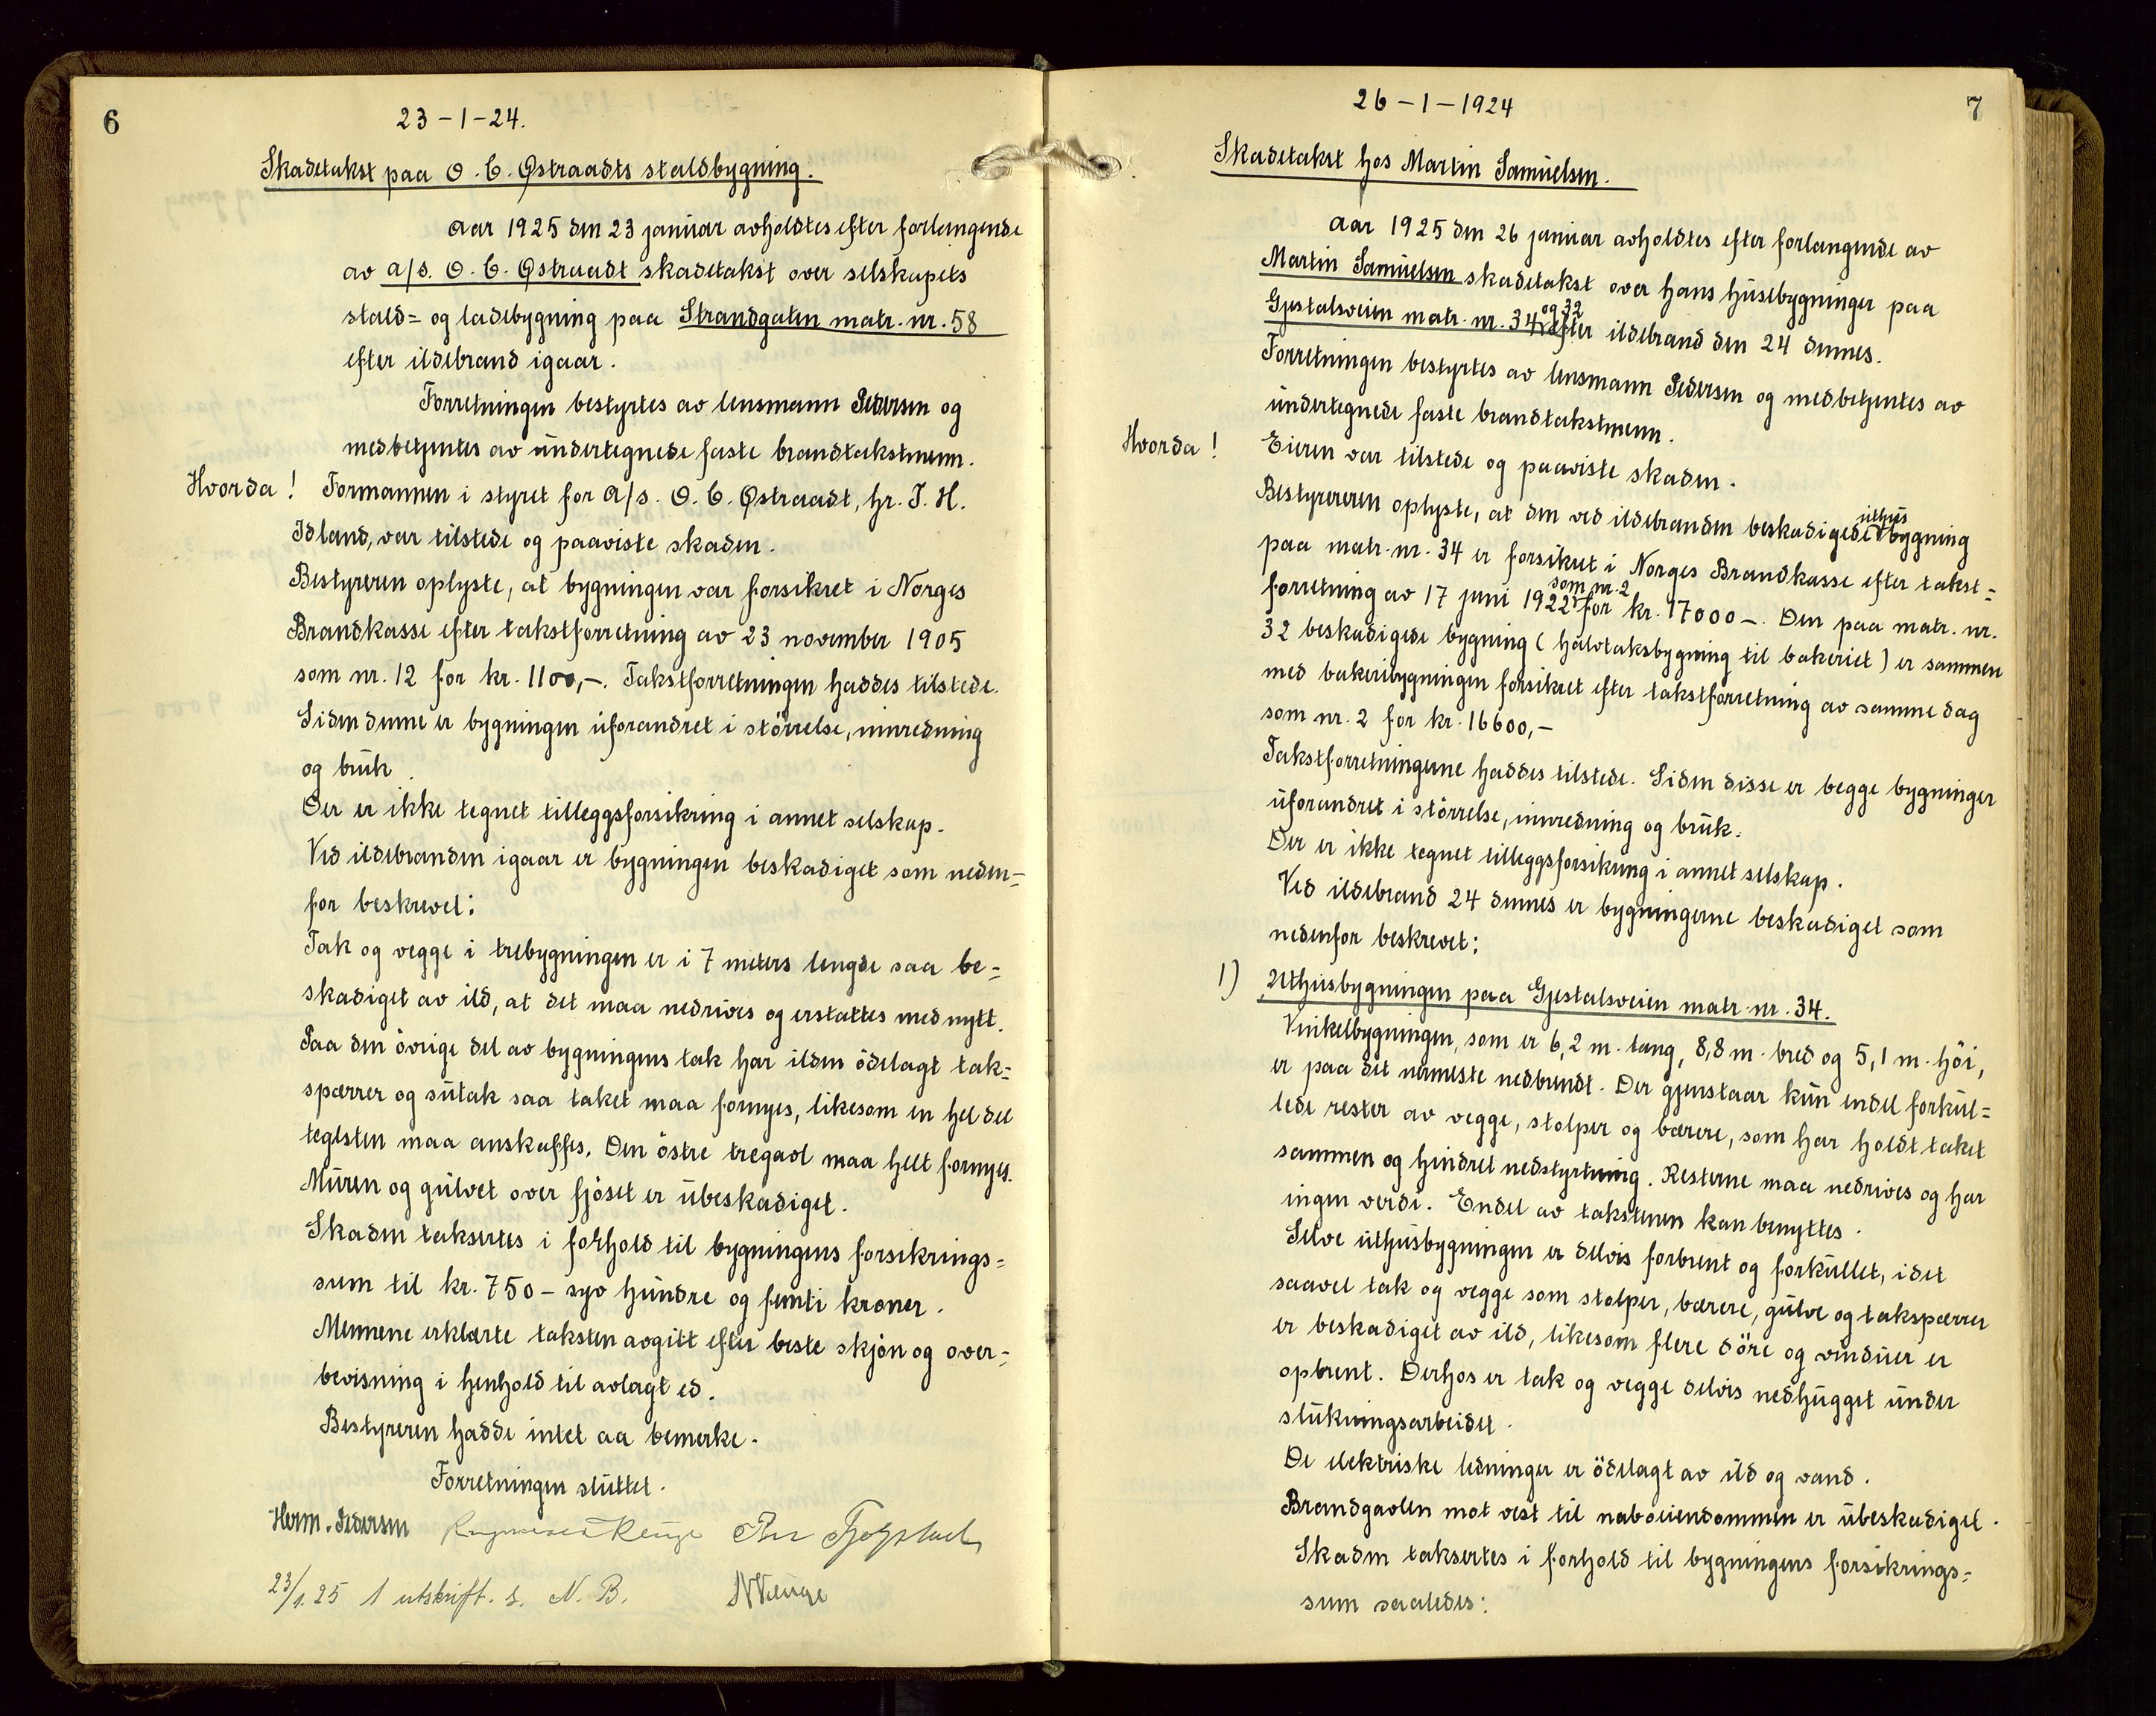 6
23-1-24.
Skadetakst paa O. C. Østraadts staldbygning.
Aar 1925 den 23 januar avholdtes efter forlangende
av A/S. O. C. Østraadt skadetakst over selskapets
stald= og ladebygning paa Strandgaten matr. nr. 58
efter ildebrand igaar.
Forretningen bestyrtes av lensmann Pedersen og
medbetjentes av undertegnede faste brandtakstmenn.
Hvorda! Formannen i styret for A/S. O. C. Østraadt, hr. J. H.
Idland, var tilstede og paaviste skaden.
Bestyreren oplyste, at bygningen var forsikret i Norges
Brandkasse efter takstforretning av 23 november 1905
som nr. 12 for kr. 1100,-. Takstforretningen haddes tilstede.
Siden denne er bygningen uforandret i störrelse, innredning
og bruk.
Der er ikke tegnet tilleggsforsikring i annet selskap.
Ved ildebranden igaar er bygningen beskadiget som neden=
for beskrevet:
Tak og vegge i trebygningen er i 7 meters lengde saa be=
skadiget av ild, at det maa nedrives og erstattes med nytt.
Paa den övrige del av bygningens tak har ilden ödelagt tak=
spærrer og sutak saa taket maa fornyes, likesom en hel del
teglsten maa anskaffes. Den östre tregavl maa helt fornyes.
Muren og gulvet over fjöset er ubeskadiget.
Skaden taksertes i forhold til bygningens forsikrings=
sum til kr. 750 - syv hundre og femti kroner.
Mennene erklærte taksten avgitt efter beste skjön og over=
bevisning i henhold til avlagt ed.
Bestyreren hadde intet aa bemerke.
Forretningen sluttet.
Herm. Pedersen
23/1.25 1 utskrift. s. N. B.
7
26-1-1924
Skadetakst hos Martin Samuelsen.
Aar 1925 den 26 januar avholdtes efter forlangende av
Martin Samuelsen skadetakst over hans husebygninger paa
Gjestalsveien matr. nr. 34 og 32 efter ildebrand den 24 dennes.
Forretningen bestyrtes av lensmann Pedersen og medbetjentes av
undertegnede faste brandtakstmenn.
Hvorda! Eieren var tilstede og paaviste skaden.
Bestyrereren oplyste, at den ved ildebranden beskadigede uthusbygning
paa matr. nr. 34 er forsikret i Norges Brandkasse efter takst=
forretning av 17 juni 1922 som nr. 2 for kr. 17000-. Den paa matr. nr.
32 beskadigede bygning (halvtaksbygning til bakeriet) er sammen
med bakeribygningen forsikret efter takstforretning av samme dag
som nr. 2 for kr. 16600,-
Takstforretningerne haddes tilstede. Siden disse er begge bygninger
uforandret i störrelse, innredning og bruk.
Der er ikke tegnet tilleggsforsikring i annet selskap.
Ved ildebrand 24 dennes er bygningerne beskadiget som
nedenfor beskrevet:
1) Uthusbygningen paa Gjestalsveien matr. nr. 34.
Vinkelbygningen, som er 6,2 m. lang, 8,8 m. bred og 5,1 m. höi,
er paa det nermeste nedbrendt. Der gjenstaar kun endel forkul=
lede rester av vegge, stolper og bærere, som har holdt taket
sammen og hindret nedstyrtning. Resterne maa nedrives og har
ingen verdi. Endel av takstenen kan benyttes.
Selve uthusbygningen er delvis forbrent og forkullet, idet
saavel tak og vegge som stolper, bærere, gulve og takspærrer
er beskadiget av ild, likesom flere döre og vinduer er
opbrent. Derhos er tak og vegge delvis nedhugget under
slukningsarbeidet.
De elektriske ledninger er ödelagt av ild og vand.
Brandgavlen mot vest til naboeiendommen er ubeskadiget.
Skaden taksertes i forhold til bygningens forsikrings=
sum saaledes: